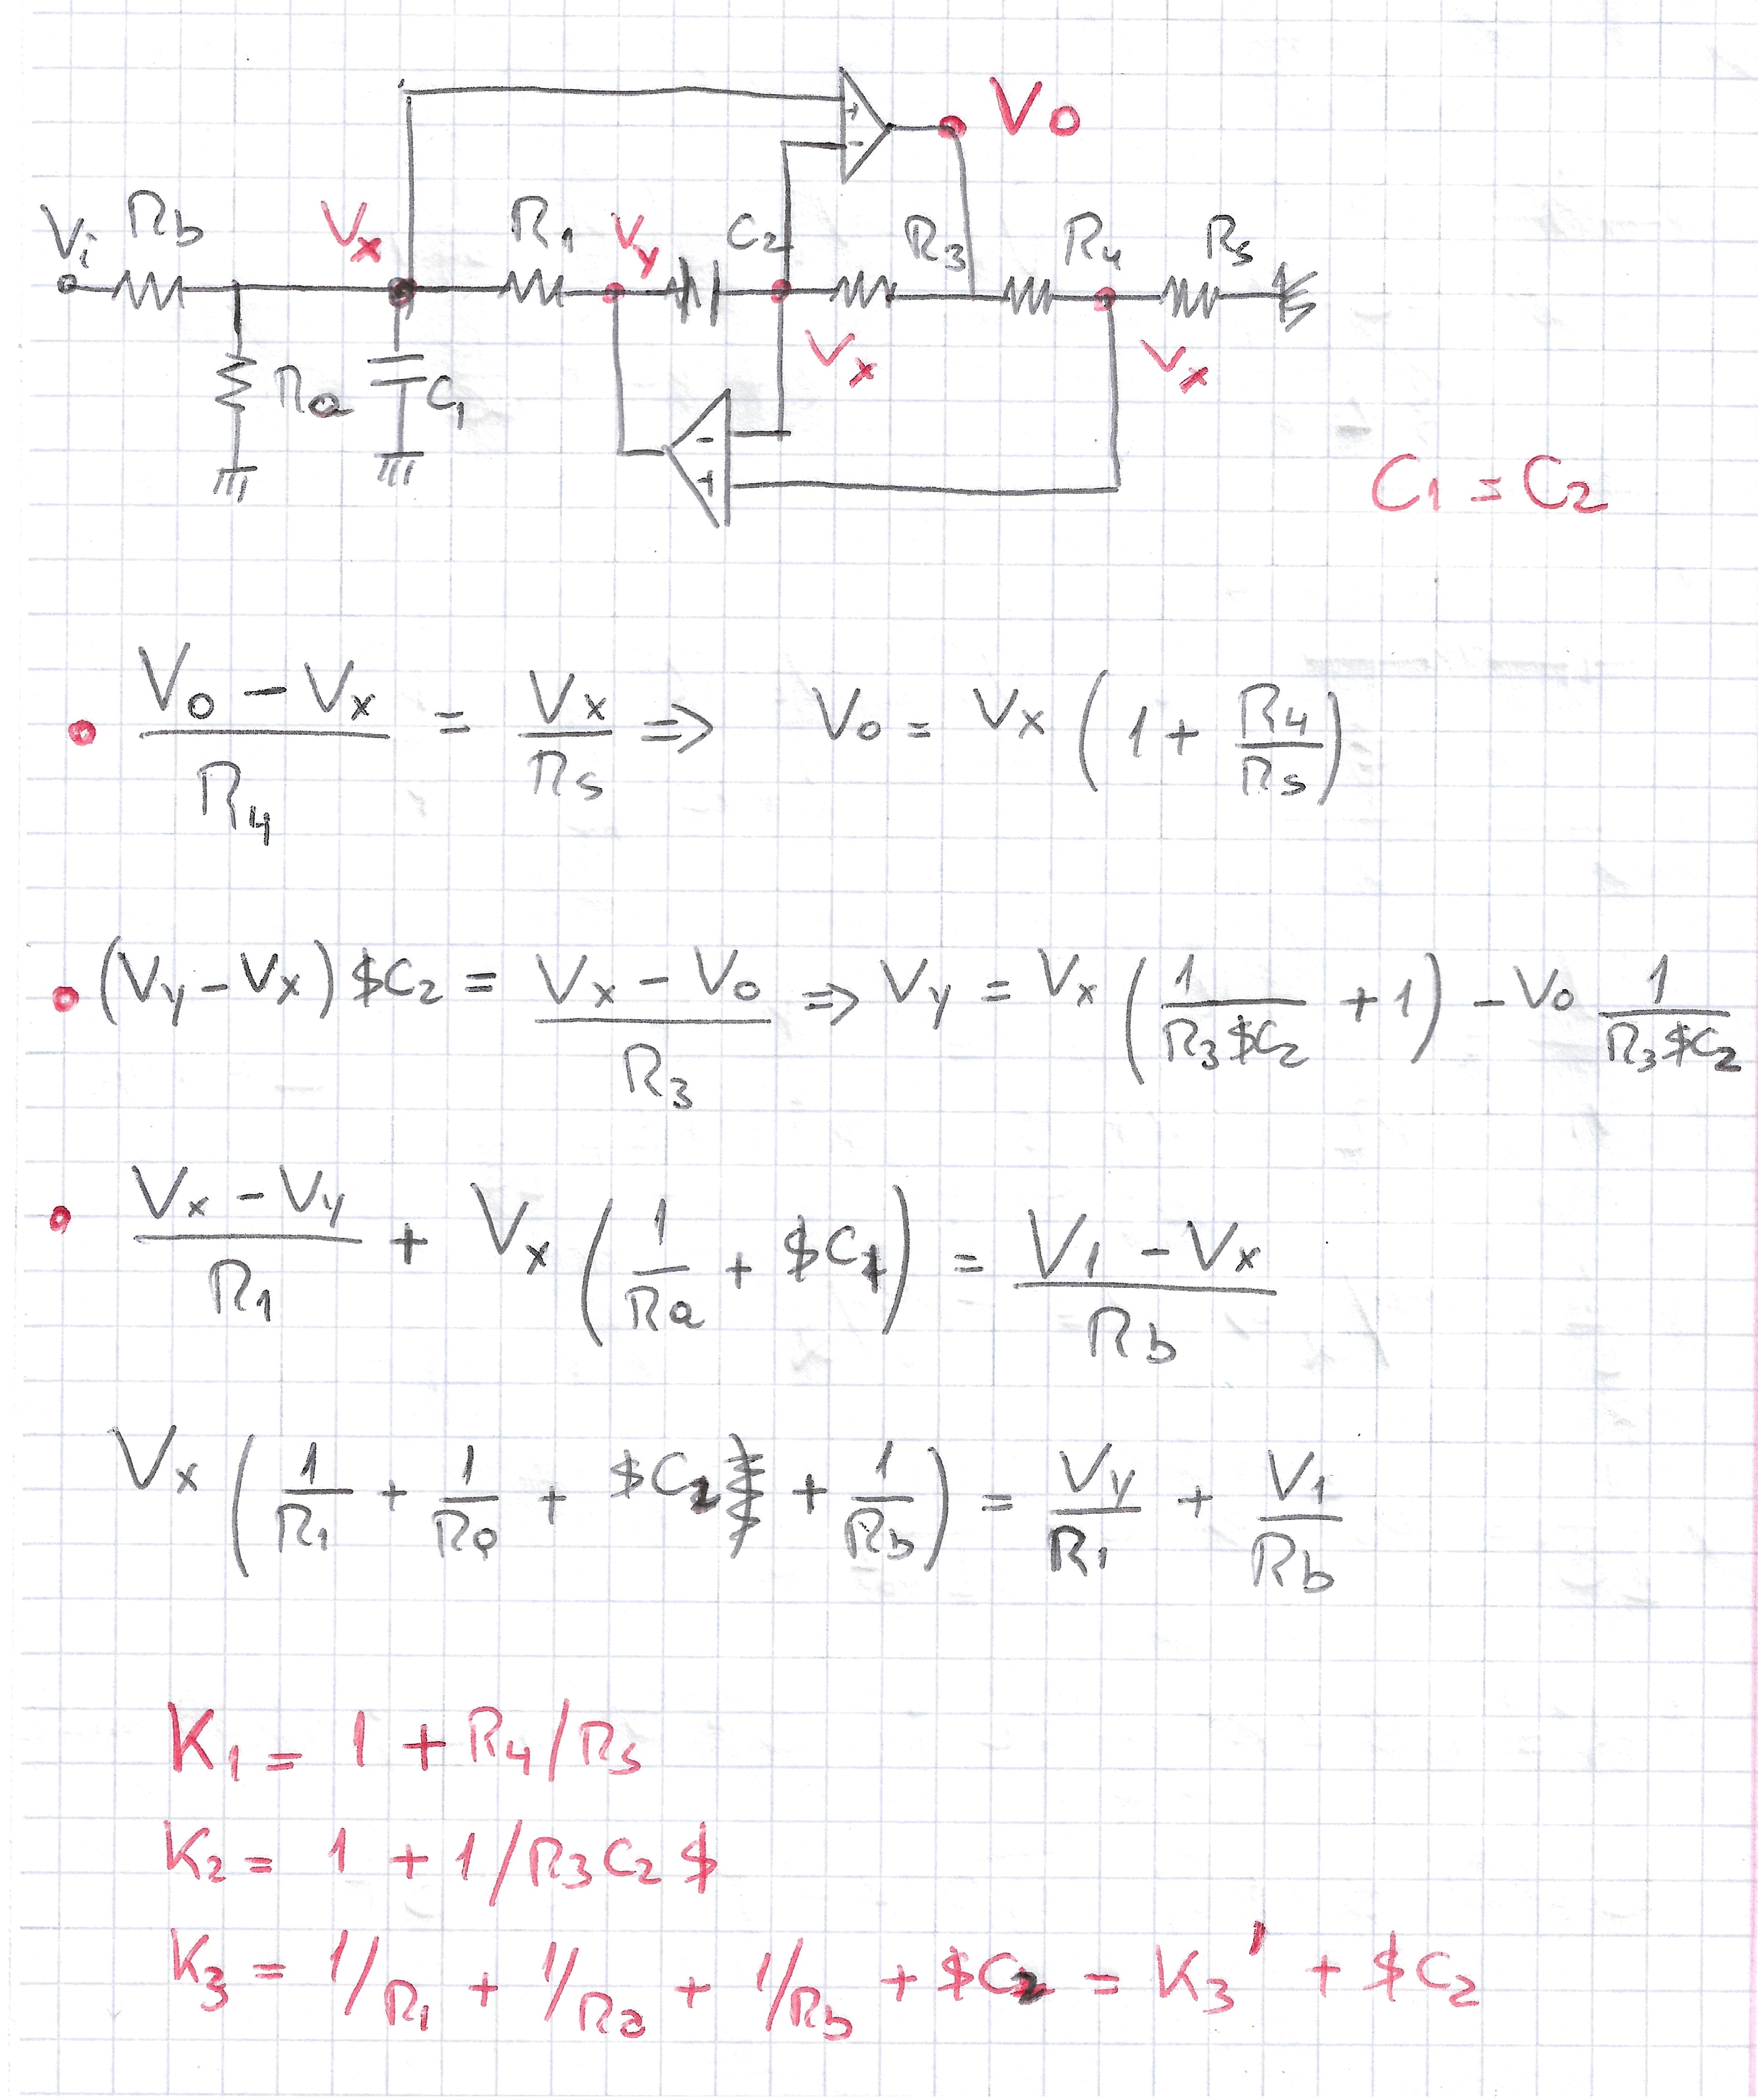 Vo
+
-
Vi Rb Vx R1 Vy C2 R3 R4 R5
Ra C1 Vx Vx
-
+
C1 = C2
• (Vo - Vx)/R4 = Vx/R5 => Vo = Vx (1 + R4/R5)
• (Vy - Vx) $C2 = (Vx - Vo)/R3 => Vy = Vx (1/(R3$C2) + 1) - Vo 1/(R3$C2)
• (Vx - Vy)/R1 + Vx (1/Ra + $C1) = (V1 - Vx)/Rb
Vx (1/R1 + 1/Ra + $C2 + 1/Rb) = Vy/R1 + V1/Rb
K1 = 1 + R4/R5
K2 = 1 + 1/R3C2$
K3 = 1/R1 + 1/Ra + 1/Rb + $C2 = K3' + $C2